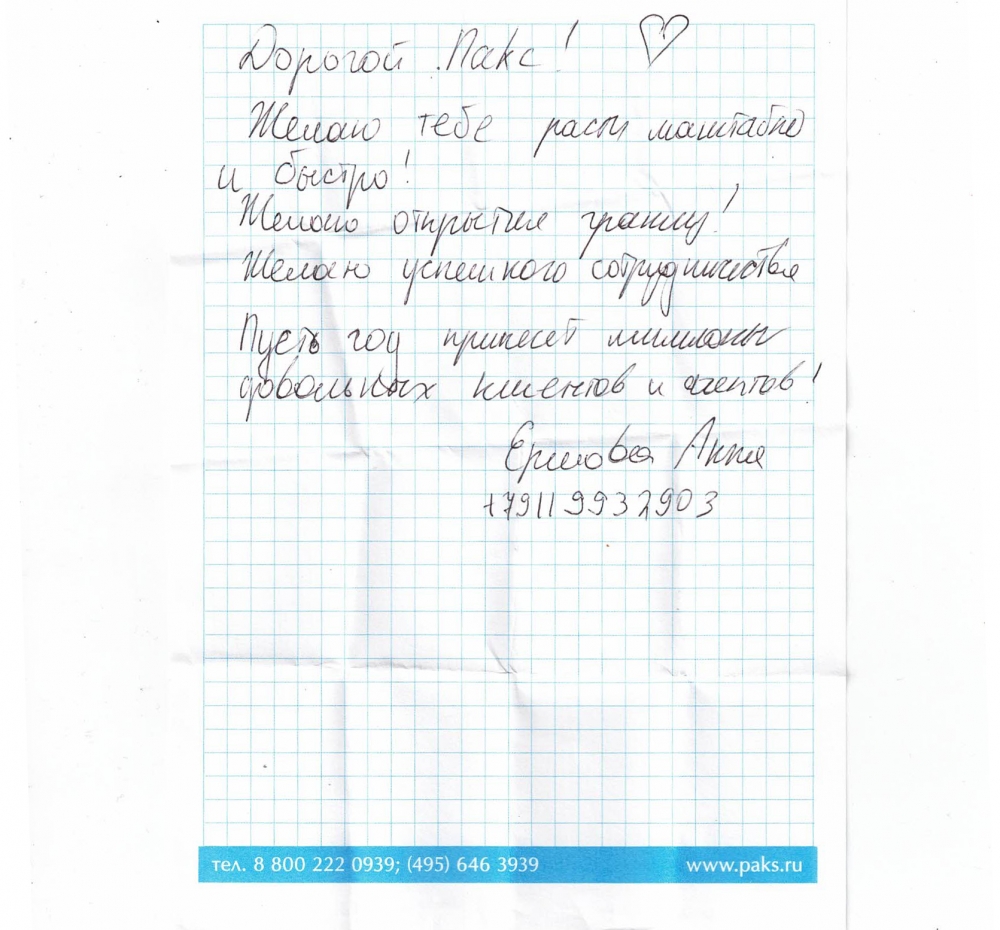 Дорогой Пакс!
Желаю тебе расти масштабно
и быстро!
Желаю открытия границ!
Желаю успешного сотрудничества
Пусть год принесет миллионы
довольных клиентов и агентов!
Ершова Анна
+79119932903
тел. 8 800 222 0939; (495) 646 3939 www.paks.ru